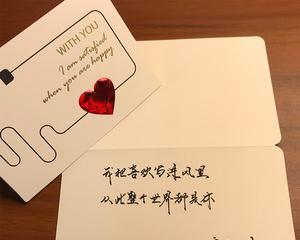 WITH YOU
I am satisfied
when you are happy
我把喜欢写进风里
从此整个世界都是你